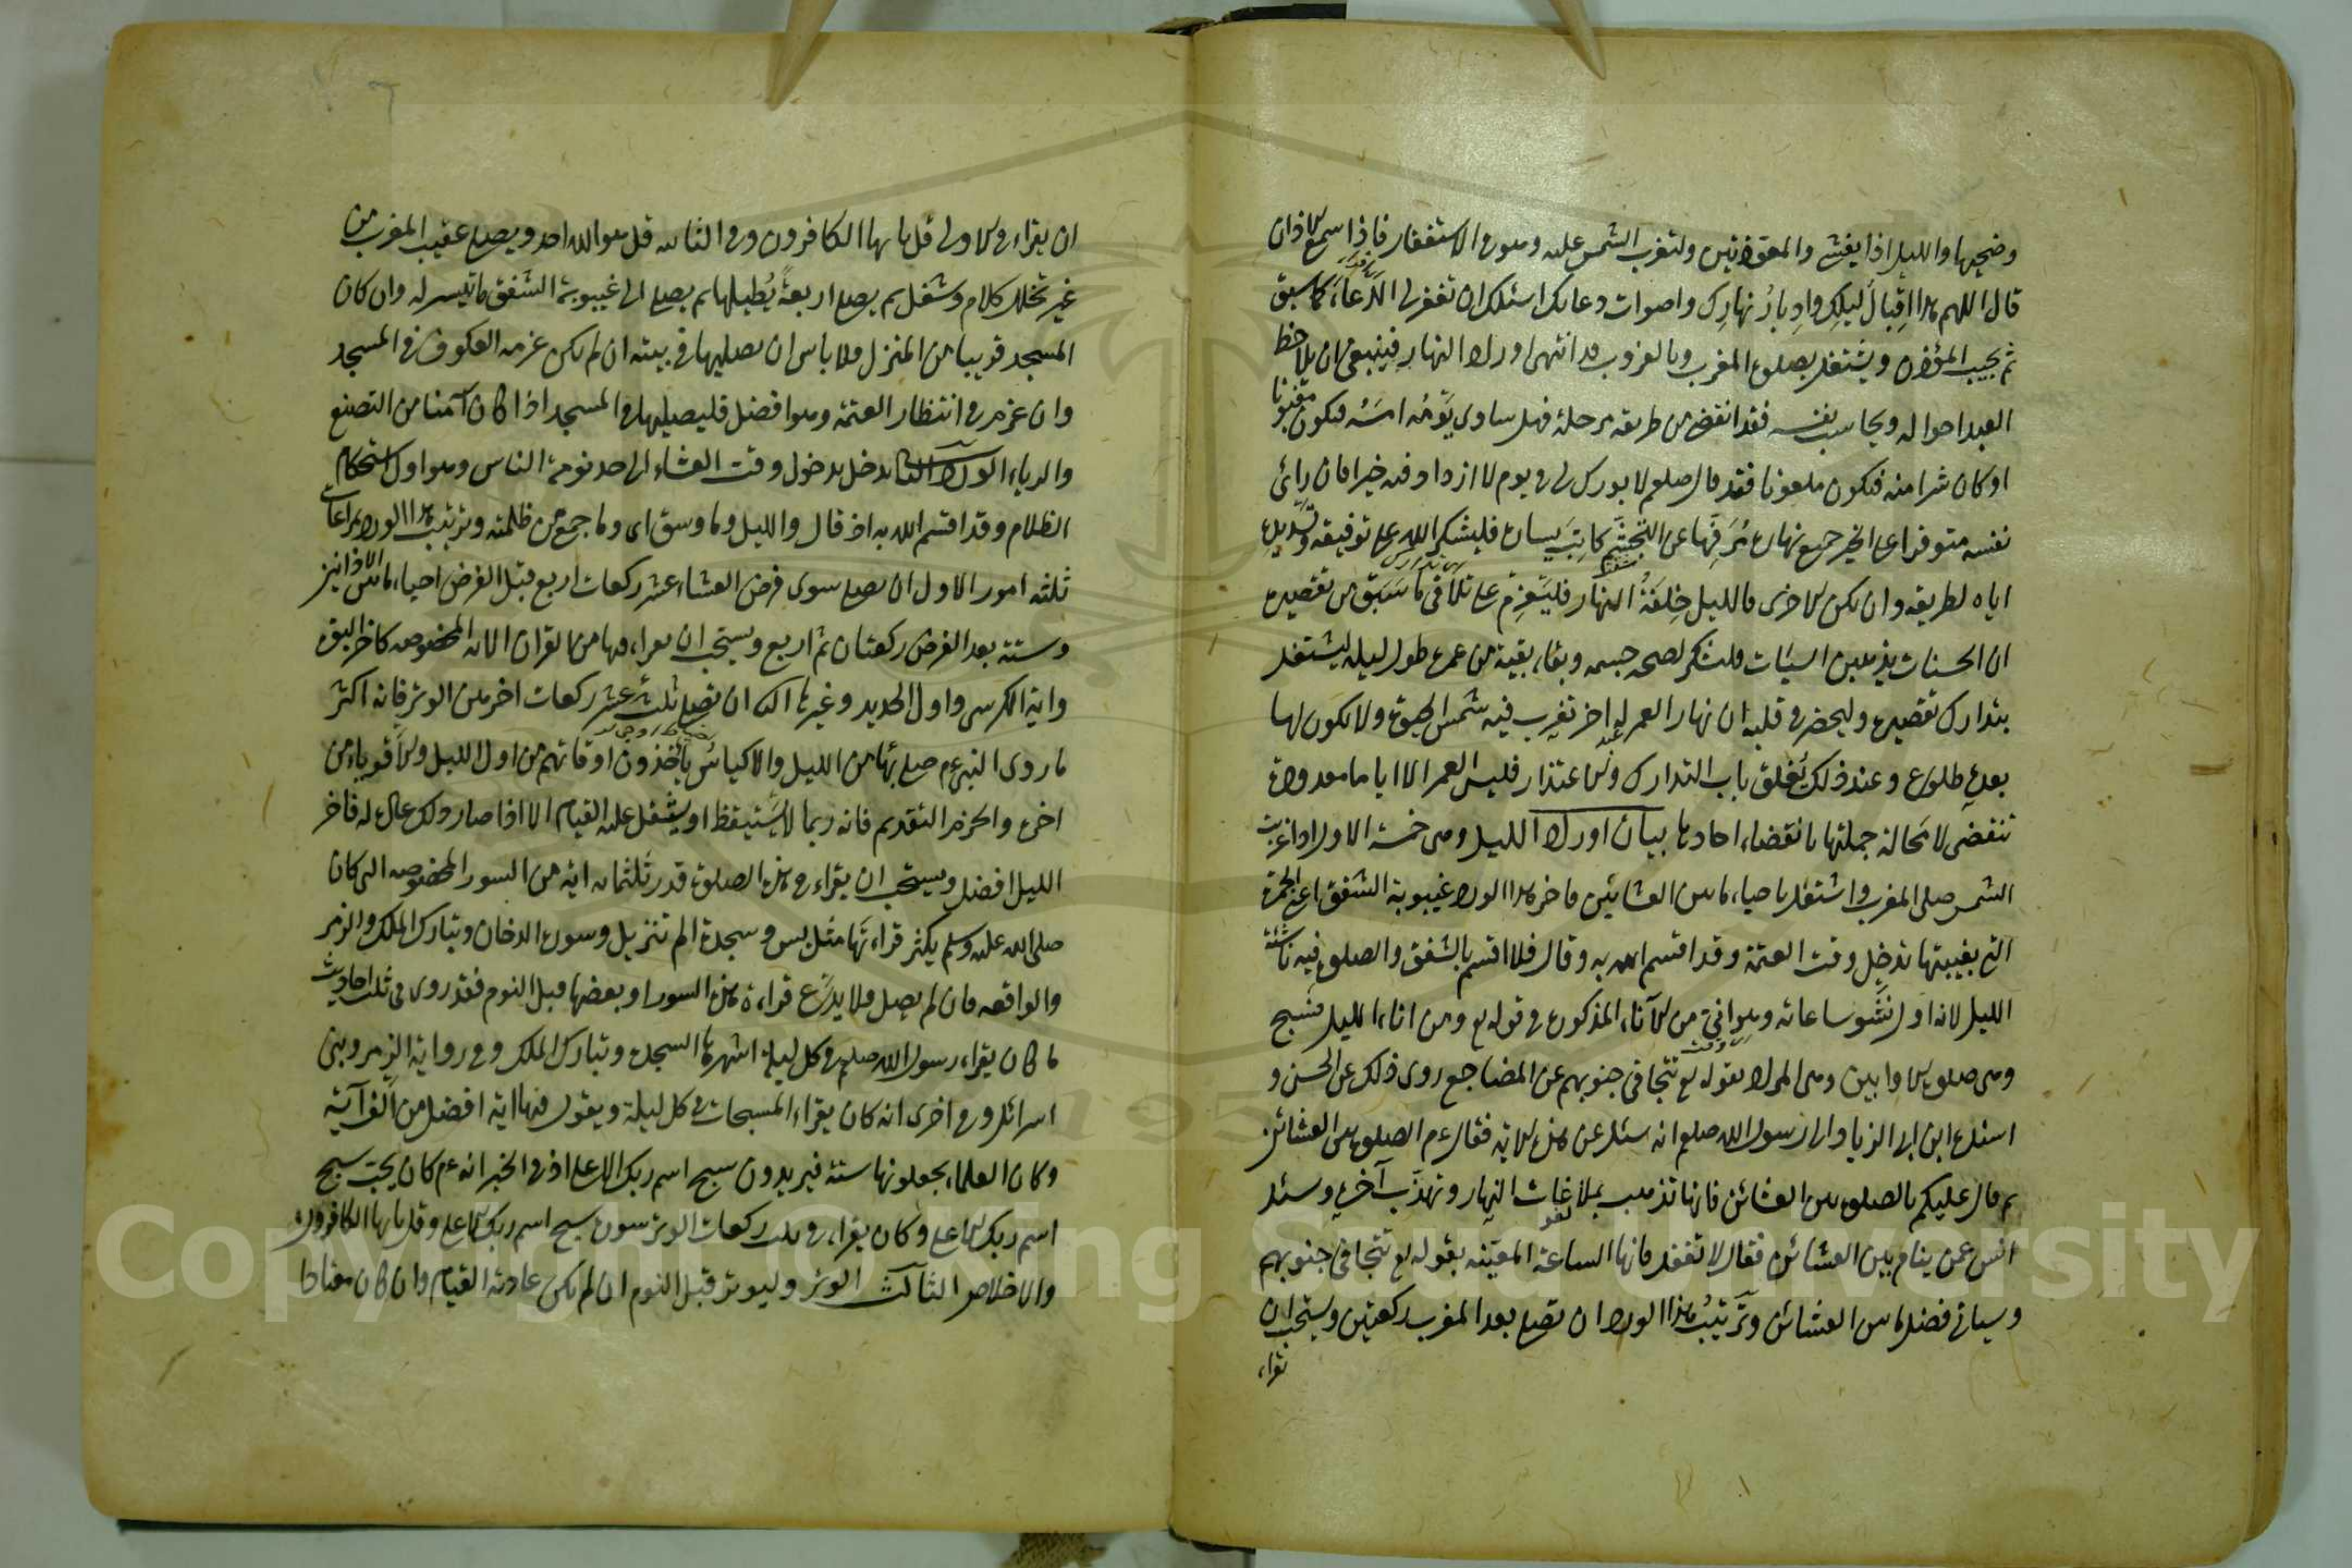 وضحيها والليل اذا يغشى والمعوذتين ولتغرب الشمس عليه وهو في الاستغفار فاذا سمع الاذان
قال اللهم هذا اقبال ليلك وادبار نهارك واصوات دعاتك اسئلك ان تغفر لي الدعاء كما سبق
ثم يجيب المؤذن ويشتغل بصلوة المغرب وبالغروب قد انتهى اوراد النهار فينبغي ان يلاحظ
العبد احواله ويحاسب نفسه فقد انقضى من طريقه مرحلة فهل ساوى يومه امسه فيكون مغبونا
او كان شرا منه فيكون ملعونا فقد قال صلعم لا بورك لي في يوم لا ازداد فيه خيرا فان رائى
نفسه متوفرا على الخير جميع نهاره مرفها عن التجشم كانت بشارة فليشكر الله على توفيقه وتسديده
اياه لطريقه وان يكن الاخرى فالليل خلفة النهار فليعزم على تلافي ما سبق من تقصيره
ان الحسنات يذهبن السيئات وليشكر لصحة جسمه وبقاء بقية من عمره طول ليله ليشتغل
بتدارك تقصيره وليحضر في قلبه ان نهار العمر له اخر تغرب فيه شمس الحيوة ولا يكون لها
بعده طلوع وعند ذلك يغلق باب التدارك والاعتذار فليس العمر الا اياما معدودة
تنقضى لا محالة جملتها بانقضاء احادها بيان اوراد الليل وهى خمسة الاول اذا غربت
الشمس صلى المغرب واشتغل باحياء ما بين العشائين فاخر هذا الورد غيبوبة الشفق اعنى الحمرة
التي بغيبتها تدخل وقت العتمة وقد اقسم الله به وقال فلا اقسم بالشفق والصلوة فيه ناشئة
الليل لانه اول نشو ساعاته وهو اني من الآناء المذكورة في قوله تع ومن اناء الليل فسبح
وهى صلوة الاوابين وهى المراد بقوله تع تتجافى جنوبهم عن المضاجع روى ذلك عن الحسن و
اسنده ابن ابي الزياد الى رسول الله صلعم انه سئل عن هذه الاية فقال عم الصلوة بين العشائين
ثم قال عليكم بالصلوة بين العشائين فانها تذهب بملاغات النهار وتهذب آخره وسئل
انس عمن ينام بين العشائين فقال لا تفعل فانها الساعة المعينه بقوله تع تتجافى جنوبهم
وسياتي فضل ما بين العشائين وترتيب هذا الورد ان تصلى بعد المغرب ركعتين ويستحب ان
تقراء
ان يقراء في الاولى قل يا يها الكافرون وفي الثانيه قل هو الله احد ويصلى عقيب المغرب من
غير تخلل كلام وشغل ثم يصلى اربعة يطيلها ثم يصلى الى غيبوبة الشفق ما تيسر له وان كان
المسجد قريبا من المنزل فلا باس ان يصليها في بيته ان لم يكن عزمه العكوف في المسجد
وان عزم في انتظار العتمة وهو افضل فليصليها في المسجد اذا كان آمنا من التصنع
والرياء الورد الثاني يدخل بدخول وقت العشاء الى حد نومة الناس وهو اول استحكام
الظلام وقد اقسم الله به اذ قال والليل وما وسق اى وما جمع من ظلمته وترتيب هذا الورد بمراعاة
ثلثة امور الاول ان يصلى سوى فرض العشاء عشر ركعات اربع قبل الفرض احياء ما بين الاذانين
وستة بعد الفرض ركعتان ثم اربع ويستحب ان يقراء فيها من القران الايات المخصوصه كاخر البقرة
واية الكرسى واول الحديد وغيرها الثاني ان تصلى ثلث عشر ركعات اخرهن الوتر فانه اكثر
ما روى النبي عم صلى بها من الليل والاكياس يأخذون اوقاتهم من اول الليل والاقوياء من
اخره والحزم التقديم فانه ربما لا يستيقظ او يثقل عليه القيام الا اذا صار ذلك عادة له فاخر
الليل افضل ويستحب ان يقراء في هذه الصلوة قدر ثلثمائة اية من السور المخصوصه التي كان
صلى الله عليه وسلم يكثر قراءتها مثل يس وسجدة الم تنزيل وسورة الدخان وتبارك الملك والزمر
والواقعه فان لم يصل فلا يدع قراءة هذه السور او بعضها قبل النوم فقد روى في ثلث احاديث
ما كان يقراء رسول الله صلعم في كل ليلة اشهرها السجدة وتبارك الملك وفي رواية الزمر وبنى
اسرائل وفي اخرى انه كان يقراء المسبحات في كل ليلة ويقول فيها اية افضل من الف آية
وكان العلماء يجعلونها ستة فيزيدون سبح اسم ربك الاعلى اذ في الخبر انه عم كان يحب سبح
اسم ربك الاعلى وكان يقراء في ثلث ركعات الوتر سورة سبح اسم ربك الاعلى وقل يا يها الكافرون
والاخلاص الثالث الوتر وليوتر قبل النوم ان لم يكن عادته القيام وان كان معتادا
Copyright © King Saud University